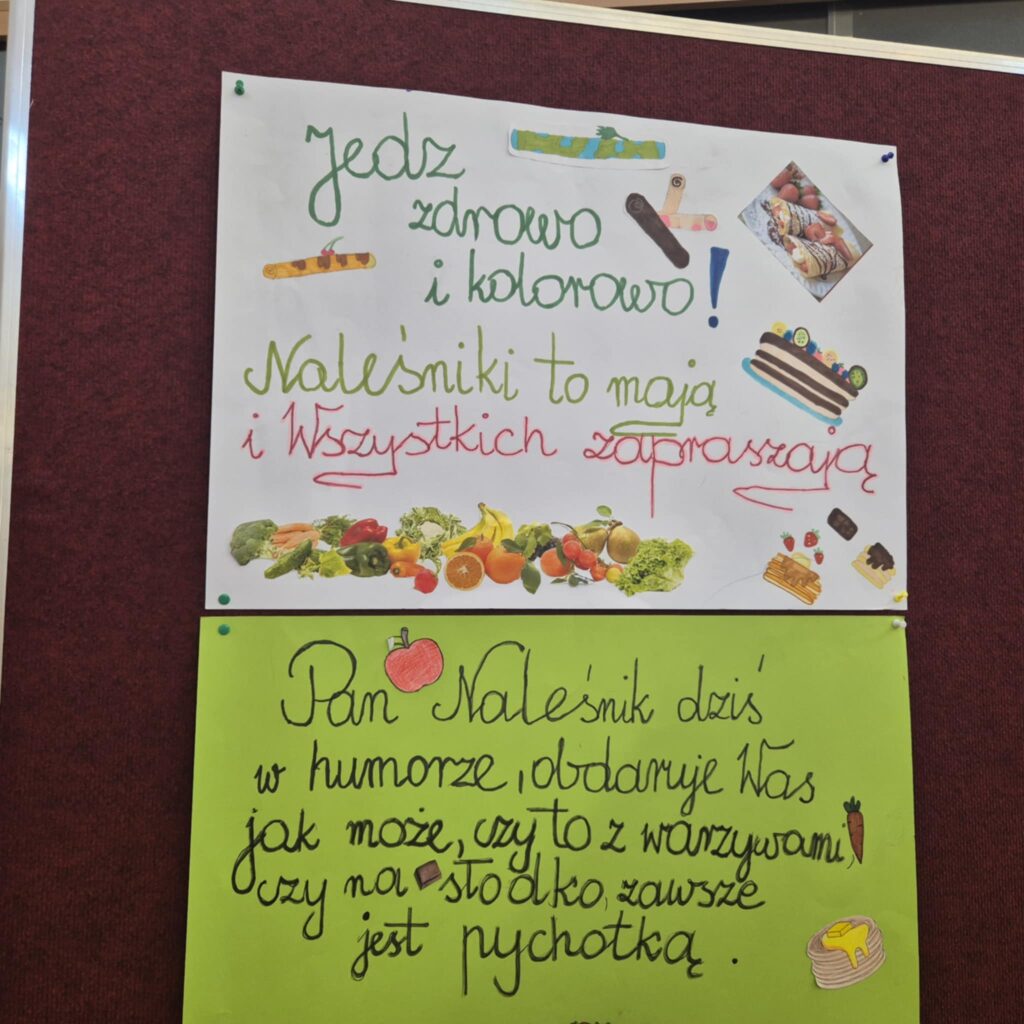 Jedz
zdrowo
i kolorowo!
Naleśniki to mają
i Wszystkich zapraszają
Pan Naleśnik dziś
w humorze, obdaruje Was
jak może, czy to z warzywami,
czy na słodko, zawsze
jest pychotką.